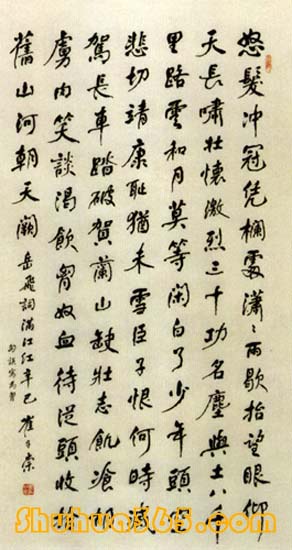 怒髮冲冠凭欄處瀟〻雨歇抬望眼仰
天長嘯壯懷激烈三十功名塵與土八千
里路雲和月莫等閑白了少年頭空
悲切靖康恥猶未雪臣子恨何時滅
駕長車踏破賀蘭山缺壯志飢飡胡
虜肉笑談渴飲胷奴血待從頭收拾
舊山河朝天闕 岳飛詞滿江红辛巳 崔子崇
匈誤寫為胷
Shuhua565.com